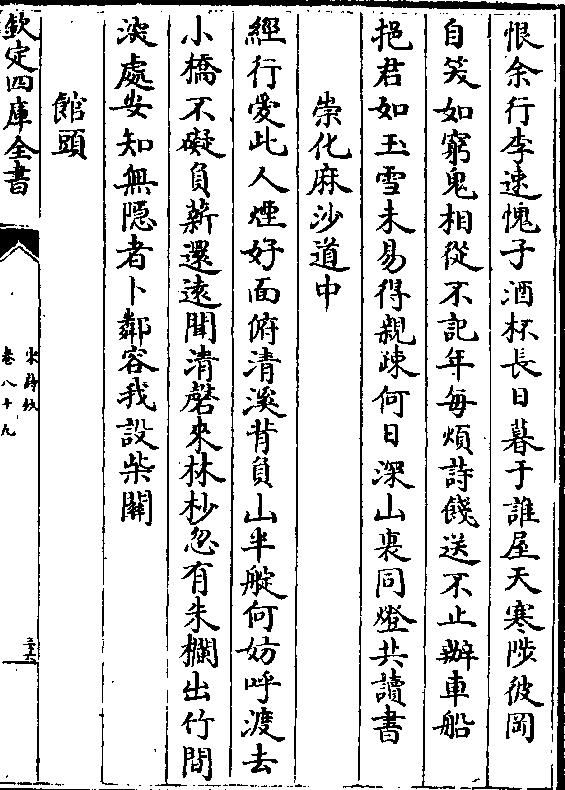 恨余行李速愧子酒杯長日暮于誰屋天寒陟彼岡
自笑如窮鬼相從不記年每煩詩餞送不止辦車船
挹君如玉雪未易得親疎何日深山裏同燈共讀書
崇化麻沙道中
經行愛此人煙好面俯清溪背負山半艇何妨呼渡去
小橋不礙負薪還遠聞清磬來林杪忽有朱欄出竹間
深處安知無隠者卜鄰容我設柴關
館頭
欽定四庫全書
宋詩鈔
卷八十九